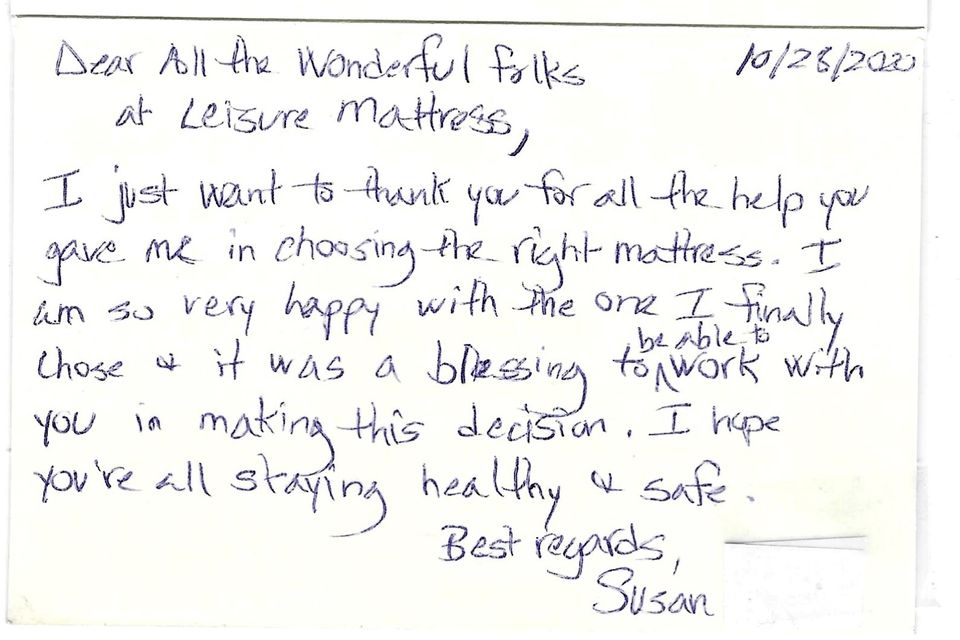 10/28/2020
Dear All the Wonderful folks
at Leisure Mattress,
I just want to thank you for all the help you
gave me in choosing the right mattress. I
am so very happy with the one I finally
chose & it was a blessing to be able to work with
you in making this decision. I hope
you're all staying healthy & safe.
Best regards,
Susan